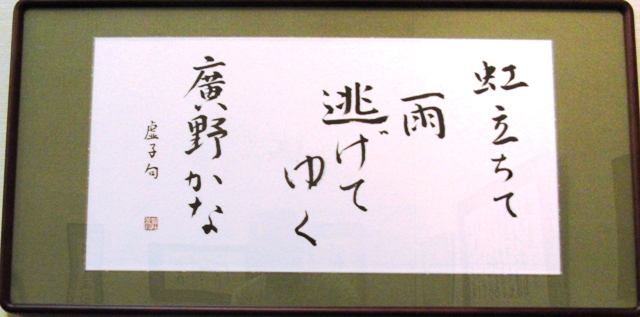 虹立ちて
雨
逃げて
ゆく
廣野かな
虚子句